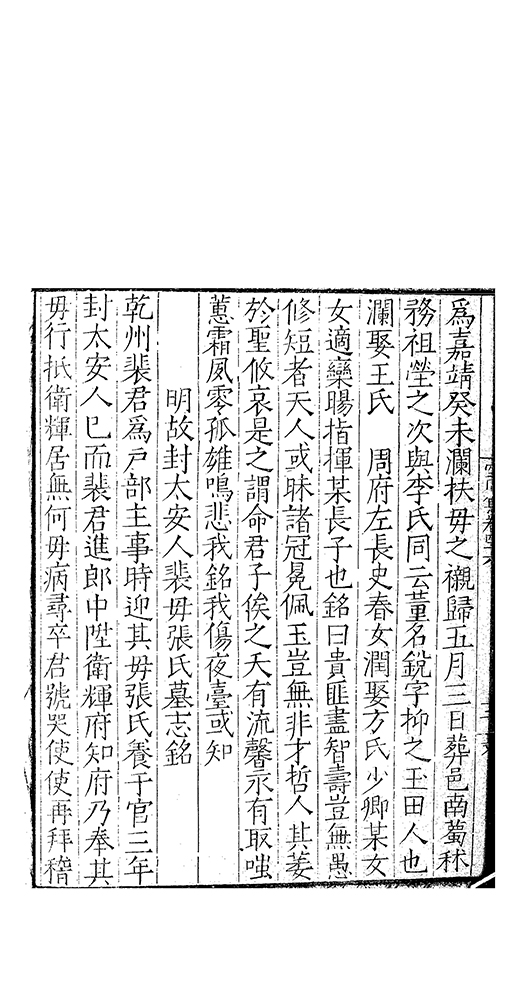 為嘉靖癸未瀾扶母之櫬歸五月三日葬邑南蔔秫
務祖塋之次與李氏同云董名銳字抑之玉田人也
瀾娶王氏　周府左長史春女潤娶方氏少卿某女
女適欒暘指揮某長子也銘曰貴匪盡智壽豈無愚
修短者天人或昧諸冠冕佩玉豈無非才哲人其萎
於聖攸哀是之謂命君子俟之夭有流馨永有取嗤
蕙霜夙零孤雄鳴悲我銘我傷夜臺或知
明故封太安人裴母張氏墓志銘
乾州裴君為戶部主事時迎其母張氏養于官三年
封太安人已而裴君進郎中陞衛輝府知府乃奉其
母行抵衛輝居無何母病尋卒君號哭使使再拜稽